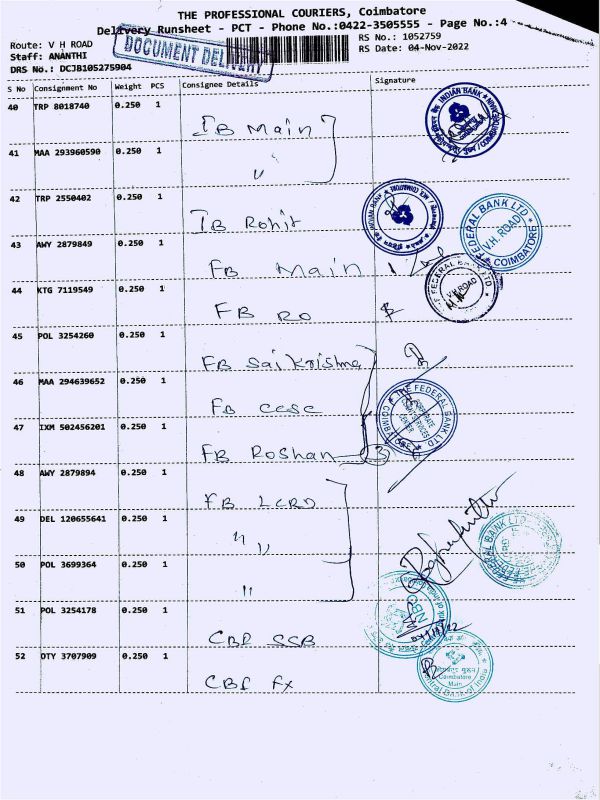 THE PROFESSIONAL COURIERS, Coimbatore
Delivery Runsheet - PCT - Phone No.:0422-3505555 - Page No.:4
Route: V H ROAD
RS No.: 1052759
Staff: ANANTHI
RS Date: 04-Nov-2022
DRS No.: DCJB105275904
DOCUMENT DELIVERY
S No Consignment No Weight PCS Consignee Details Signature
40 TRP 8018740 0.250 1
IB Main
INDIAN BANK
41 MAA 293960590 0.250 1
"
42 TRP 2550402 0.250 1
IB Rohit
INDIAN BANK
FEDERAL BANK LTD
V.H. ROAD
COIMBATORE
43 AWY 2879849 0.250 1
FB Main
44 KTG 7119549 0.250 1
FB RO
FEDERAL BANK LTD
V.H.ROAD
45 POL 3254260 0.250 1
FB Saikrishna
46 MAA 294639652 0.250 1
FB CCSC
THE FEDERAL BANK LTD
COIMBATORE
47 IXM 502456201 0.250 1
FB Roshan
3
48 AWY 2879894 0.250 1
FB LCRD
49 DEL 120655641 0.250 1
" "
FEDERAL BANK LTD
50 POL 3699364 0.250 1
"
51 POL 3254178 0.250 1
CBI SSB
52 OTY 3707909 0.250 1
CBI FX
Coimbatore
Main
Central Bank of India